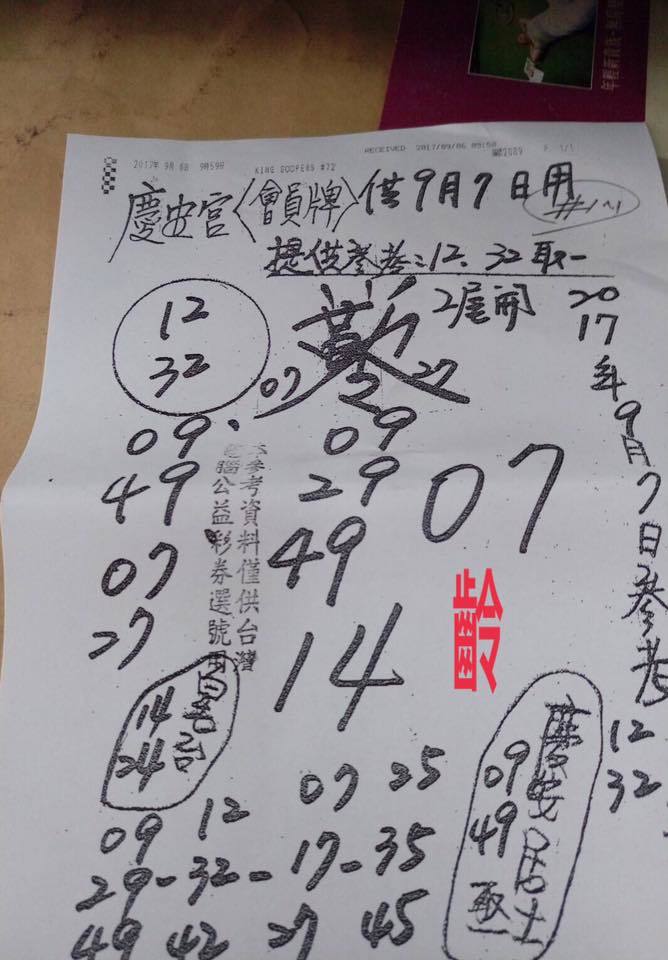 年輕新貴族
2017年 9月 6日 9時59分 KING GOOPERS #72 RECEIVED 2017/09/06 09:58 P. 1/1
慶安宮〈會員牌〉供9月7日用
提供參考:12、32取一
2尾開
2017年9月7日參考
12
32
07 27
09 09
49 29
07 49
27
07
本參考資料僅供台灣
電腦公益彩券選號用
齡
14
14
24
慶安居士
09
49
12
32
09 12 07 25
29-32-17-35
49 42 27 45